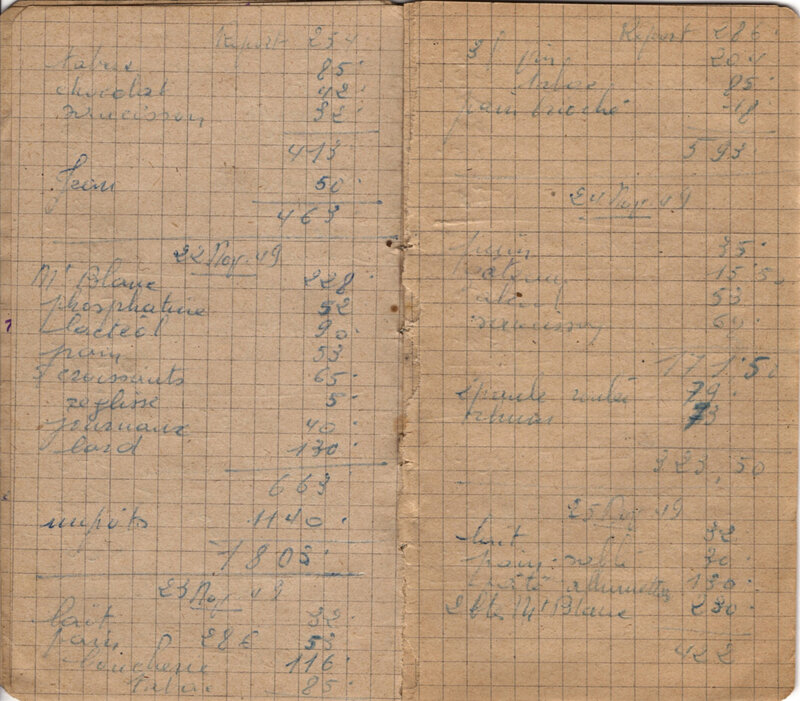 Report 254
tabac 85
chocolat 42
saucisson 32
413
Jean 50
463
22 Nov. 49
Mt Blanc 228
phosphatine 52
lacteol 90
pain 53
croissants 65
reglisse 5
journaux 40
lard 130
663
impôts 1140
1803
23 Nov 49
lait 32
pain 286 53
boucherie 116
tabac 85
Report 286
204
tabac 85
pain brioché 18
593
24 Nov 49
35
15.50
53
saucisson
171.50
épaule roulée 79
73
323,50
25 Nov 49
lait 32
pain 30
allumettes 130
2 btes Mt Blanc 230
422